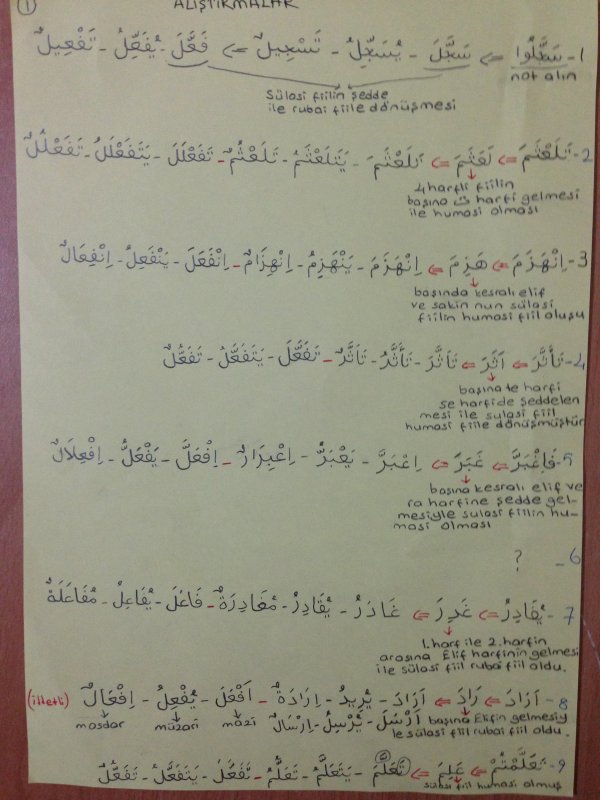 ① ALIŞTIRMALAR
1- سَجَّلُوا ⇐ سَجَّلَ - يُسَجِّلُ - تَسْجِيلٌ ⇐ فَعَّلَ - يُفَعِّلُ - تَفْعِيلٌ
not alın
Sülasi fiilin şedde
ile rubai fiile dönüşmesi
2- تَلَعْثَمَ ⇐ لَعْثَمَ ⇐ تَلَعْثَمَ - يَتَلَعْثَمُ - تَلَعْثُمٌ - تَفَعْلَلَ - يَتَفَعْلَلُ - تَفَعْلُلٌ
4 harfli fiilin
başına ت harfi gelmesi
ile humasi olması
3- اِنْهَزَمَ ⇐ هَزِمَ ⇐ اِنْهَزَمَ - يَنْهَزِمُ - اِنْهِزَامٌ - اِنْفَعَلَ - يَنْفَعِلُ - اِنْفِعَالٌ
başında kesralı elif
ve sakin nun sülasi
fiilin humasi fiil oluşu
4- تَأَثَّرَ ⇐ اَثَرَ ⇐ تَأَثَّرَ - تَأَثَّرُ - تَأَثَّرٌ - تَفَعَّلَ - يَتَفَعَّلُ - تَفَعُّلٌ
başına te harfi
se harfide şeddelen
mesi ile sulasi fiil
humasi fiile dönüşmüştür
5- فَاِغْبَرَّ ⇐ غَبَرَ ⇐ اِغْبَرَّ - يَغْبَرُّ - اِغْبِرَارٌ - اِفْعَلَّ - يَفْعَلُّ - اِفْعِلَالٌ
başına kesralı elif ve
ra harfine şedde gel-
mesiyle sulasi fiilin hu-
masi olması
6- ?
7- يُغَادِرُ ⇐ غَدِرَ ⇐ غَادَرَ - يُغَادِرُ - مُغَادَرَةٌ - فَاعَلَ - يُفَاعِلُ - مُفَاعَلَةٌ
1. harf ile 2. harfin
arasına Elif harfinin gelmesi
ile sülasi fiil rubai fiil oldu.
8- اَرَادَ ⇐ رَادَ ⇐ اَرَادَ - يُرِيدُ - اِرَادَةٌ - اَفْعَلَ - يُفْعِلُ - اِفْعَالٌ (illetli)
اَرْسَلَ - يُرْسِلُ - اِرْسَالٌ mazi muzari masdar
başına Elifin gelmesiy
le sülasi fiil rubai fiil oldu.
9- تَعَلَّمْتُمْ ⇐ عَلِمَ ⇐ تَعَلَّمَ - يَتَعَلَّمُ - تَعَلُّمٌ - تَفَعَّلَ - يَتَفَعَّلُ - تَفَعُّلٌ
sülasi fiil humasi olmuş